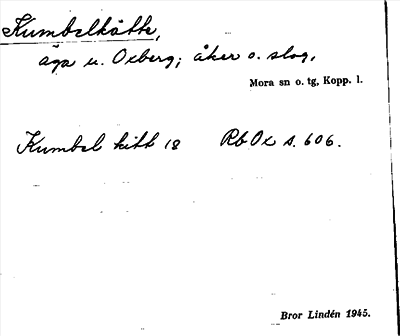 Kumbelkätte,
äga u. Oxberg; åker o. slog,
Mora sn o. tg, Kopp. l.
Kumbel kitt 18 Rb Ox s. 606.
Bror Lindén 1945.